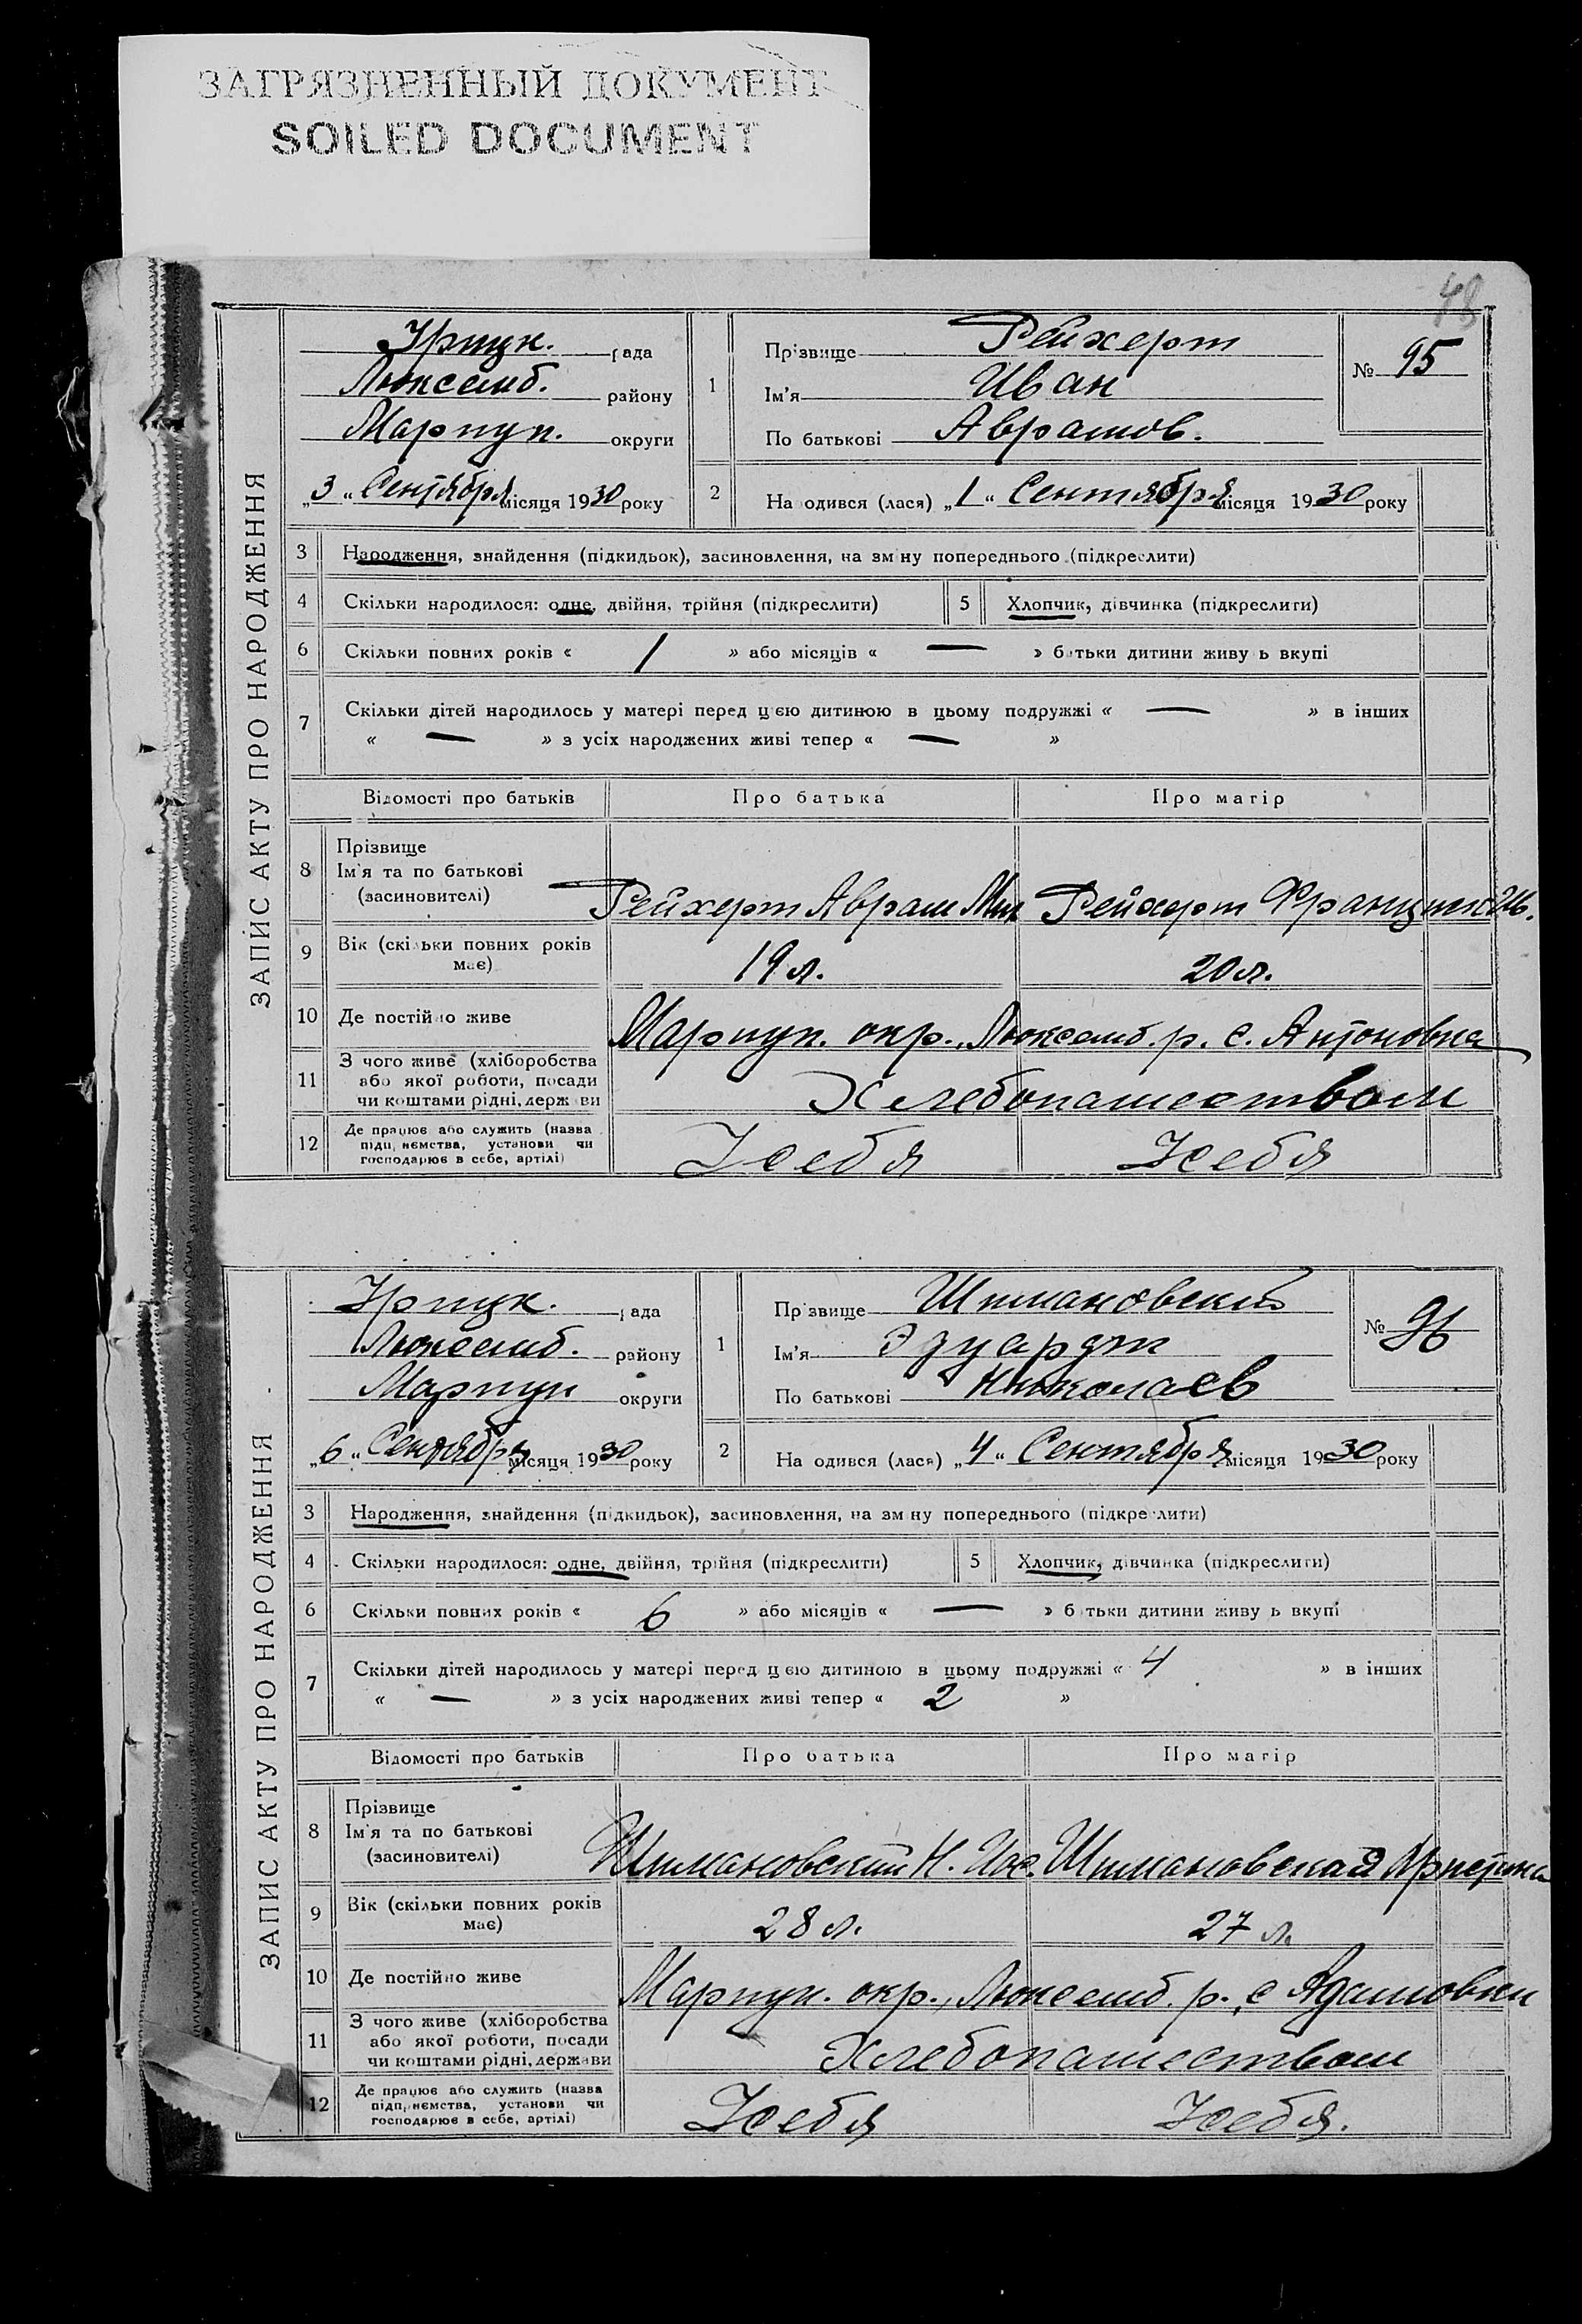 ЗАГРЯЗНЕННЫЙ ДОКУМЕНТ
SOILED DOCUMENT
48
ЗАПИС АКТУ ПРО НАРОДЖЕННЯ
рада
Люксемб. району
Мариуп. округи
„3“ Сентября місяця 1930 року
1
Прізвище Рейхерт
Ім'я Иван
По батькові Аврамов.
№ 95
2
На одився (лася) „1“ Сентября місяця 1930 року
3 Народження, знайдення (підкидьок), засиновлення, на зміну попереднього (підкреслити)
4 Скільки народилося: одне, двійня, трійня (підкреслити) 5 Хлопчик, дівчинка (підкреслити)
6 Скільки повних років « 1 » або місяців « — » батьки дитини живу ь вкупі
7 Скільки дітей народилось у матері перед цією дитиною в цьому подружжі « — » в інших
« — » з усіх народжених живі тепер « — »
Відомості про батьків Про батька Про матір
8 Прізвище
Ім'я та по батькові
(засиновителі)
Рейхерт Аврам Мих Рейхерт
9 Вік (скільки повних років
має)
19 л. 20 л.
10 Де постійно живе Мариуп. окр., Люксемб. р. с. Антоновка
11 З чого живе (хліборобства
або якої роботи, посади
чи коштами рідні, держави
Хлебопашеством
12 Де працює або служить (назва
підприємства, установи чи
господарює в себе, артілі)
У себя У себя
ЗАПИС АКТУ ПРО НАРОДЖЕННЯ
рада
Люксемб. району
Мариуп округи
„6“ Сентября місяця 1930 року
1
Прізвище Шимановский
Ім'я Эдуардт
По батькові Николаев
№ 96
2
На одився (лася) „4“ Сентября місяця 1930 року
3 Народження, знайдення (підкидьок), засиновлення, на зміну попереднього (підкреслити)
4 Скільки народилося: одне, двійня, трійня (підкреслити) 5 Хлопчик, дівчинка (підкреслити)
6 Скільки повних років « 6 » або місяців « — » батьки дитини живу ь вкупі
7 Скільки дітей народилось у матері перед цією дитиною в цьому подружжі « 4 » в інших
« — » з усіх народжених живі тепер « 2 »
Відомості про батьків Про батька Про матір
8 Прізвище
Ім'я та по батькові
(засиновителі)
Шимановский Н. Иос. Шимановская
9 Вік (скільки повних років
має)
28 л. 27 л.
10 Де постійно живе Мариуп. окр., Люксемб. р. с Адамовки
11 З чого живе (хліборобства
або якої роботи, посади
чи коштами рідні, держави
Хлебопашеством
12 Де працює або служить (назва
підприємства, установи чи
господарює в себе, артілі)
У себя У себя.